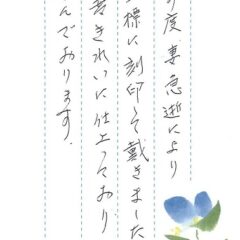 の度妻急逝により
標に刻印して戴きました
昔きれいに仕上っており
んでおります.